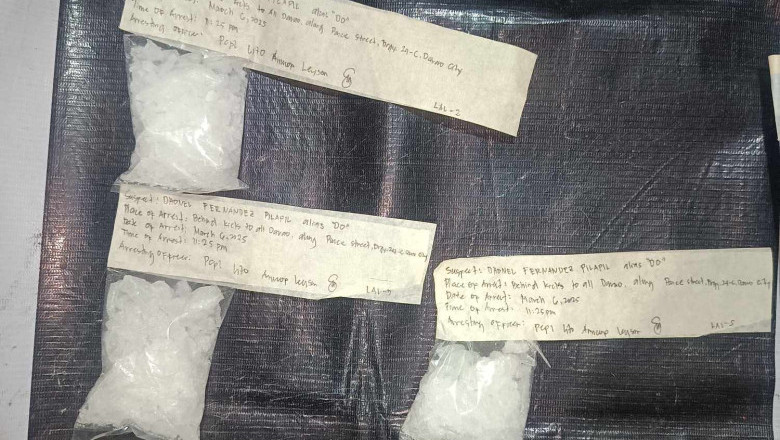 PILAPIL alias "DO"
kicks to all Davao, along Ponce street, Brgy. 29-C, Davao City
March 6, 2025
Time of Arrest: 11:25 pm
Arresting officer: Pcpl Lito Leyson
LAL-2
Suspect: DAONEL FERNANDEZ PILAPIL alias "DO"
Place of Arrest: Behind kicks to all Davao, along Ponce street, Brgy. Davao City
Date of Arrest: March 6, 2025
Time of Arrest: 11:25 pm
Arresting officer: Pcpl Lito Leyson
Suspect: DAONEL FERNANDEZ PILAPIL alias "DO"
Place of Arrest: Behind kicks to all Davao, along Ponce street, Brgy. 29-C, Davao City
Date of Arrest: March 6, 2025
Time of Arrest: 11:25 pm
Arresting officer: Pcpl Lito Leyson
LAL-5